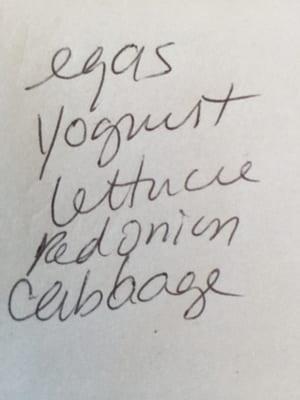 eggs
Yogurt
lettuce
Red onion
Cabbage